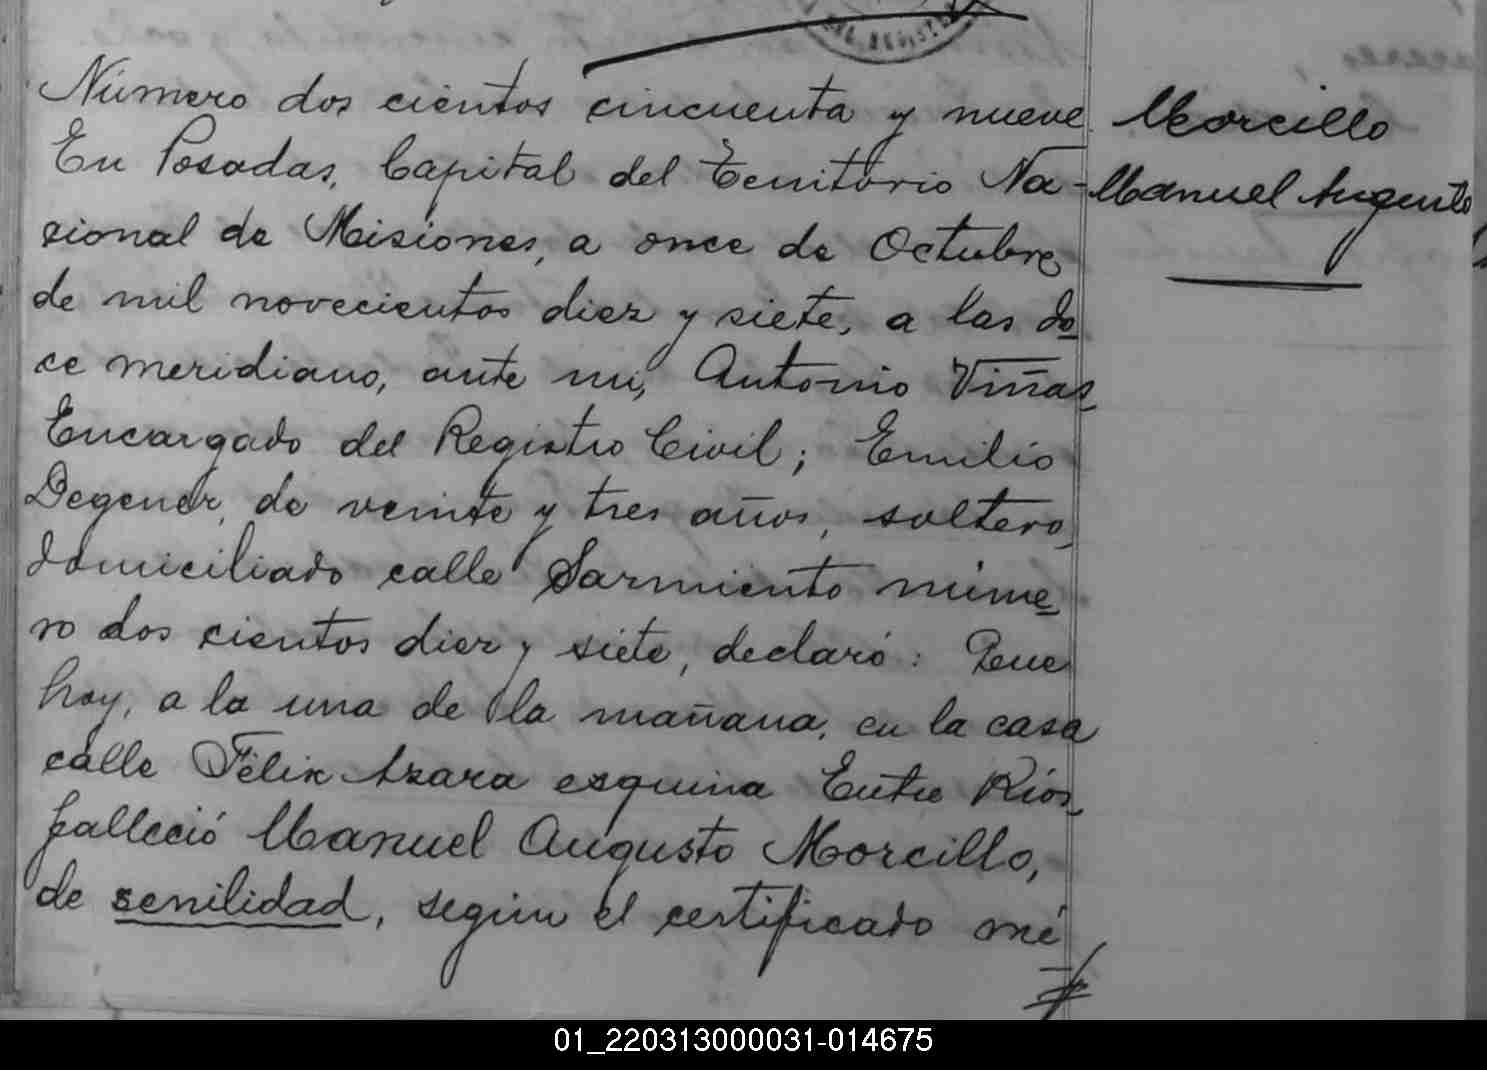 Número dos cientos cincuenta y nueve
Morcillo
En Posadas, Capital del Territorio Na-
Manuel Augusto
cional de Misiones, a once de Octubre
de mil novecientos diez y siete, a las do
ce meridiano, ante mi, Antonio Viñas,
Encargado del Registro Civil; Emilio
Degener, de veinte y tres años, soltero,
domiciliado calle Sarmiento núme
ro dos cientos diez y siete, declaró: Que
hoy, a la una de la mañana, en la casa
calle Félix Azara esquina Entre Ríos,
falleció Manuel Augusto Morcillo,
de senilidad, según el certificado mé
01_220313000031-014675